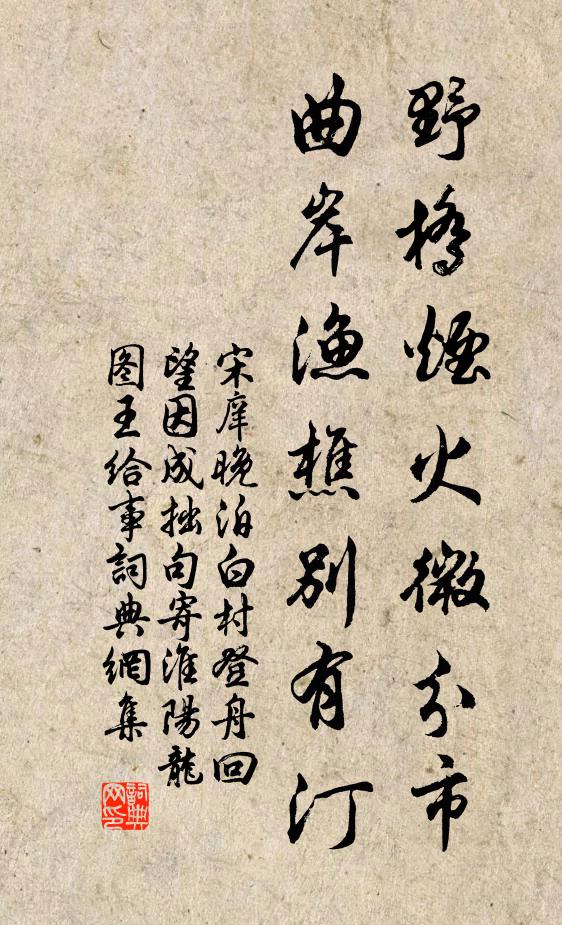 野橋煙火微分市
曲岸漁樵別有汀
宋庠晚泊白村登舟回
望因成拙句寄淮陽龍
图王给事詞典網集
詞典
网印